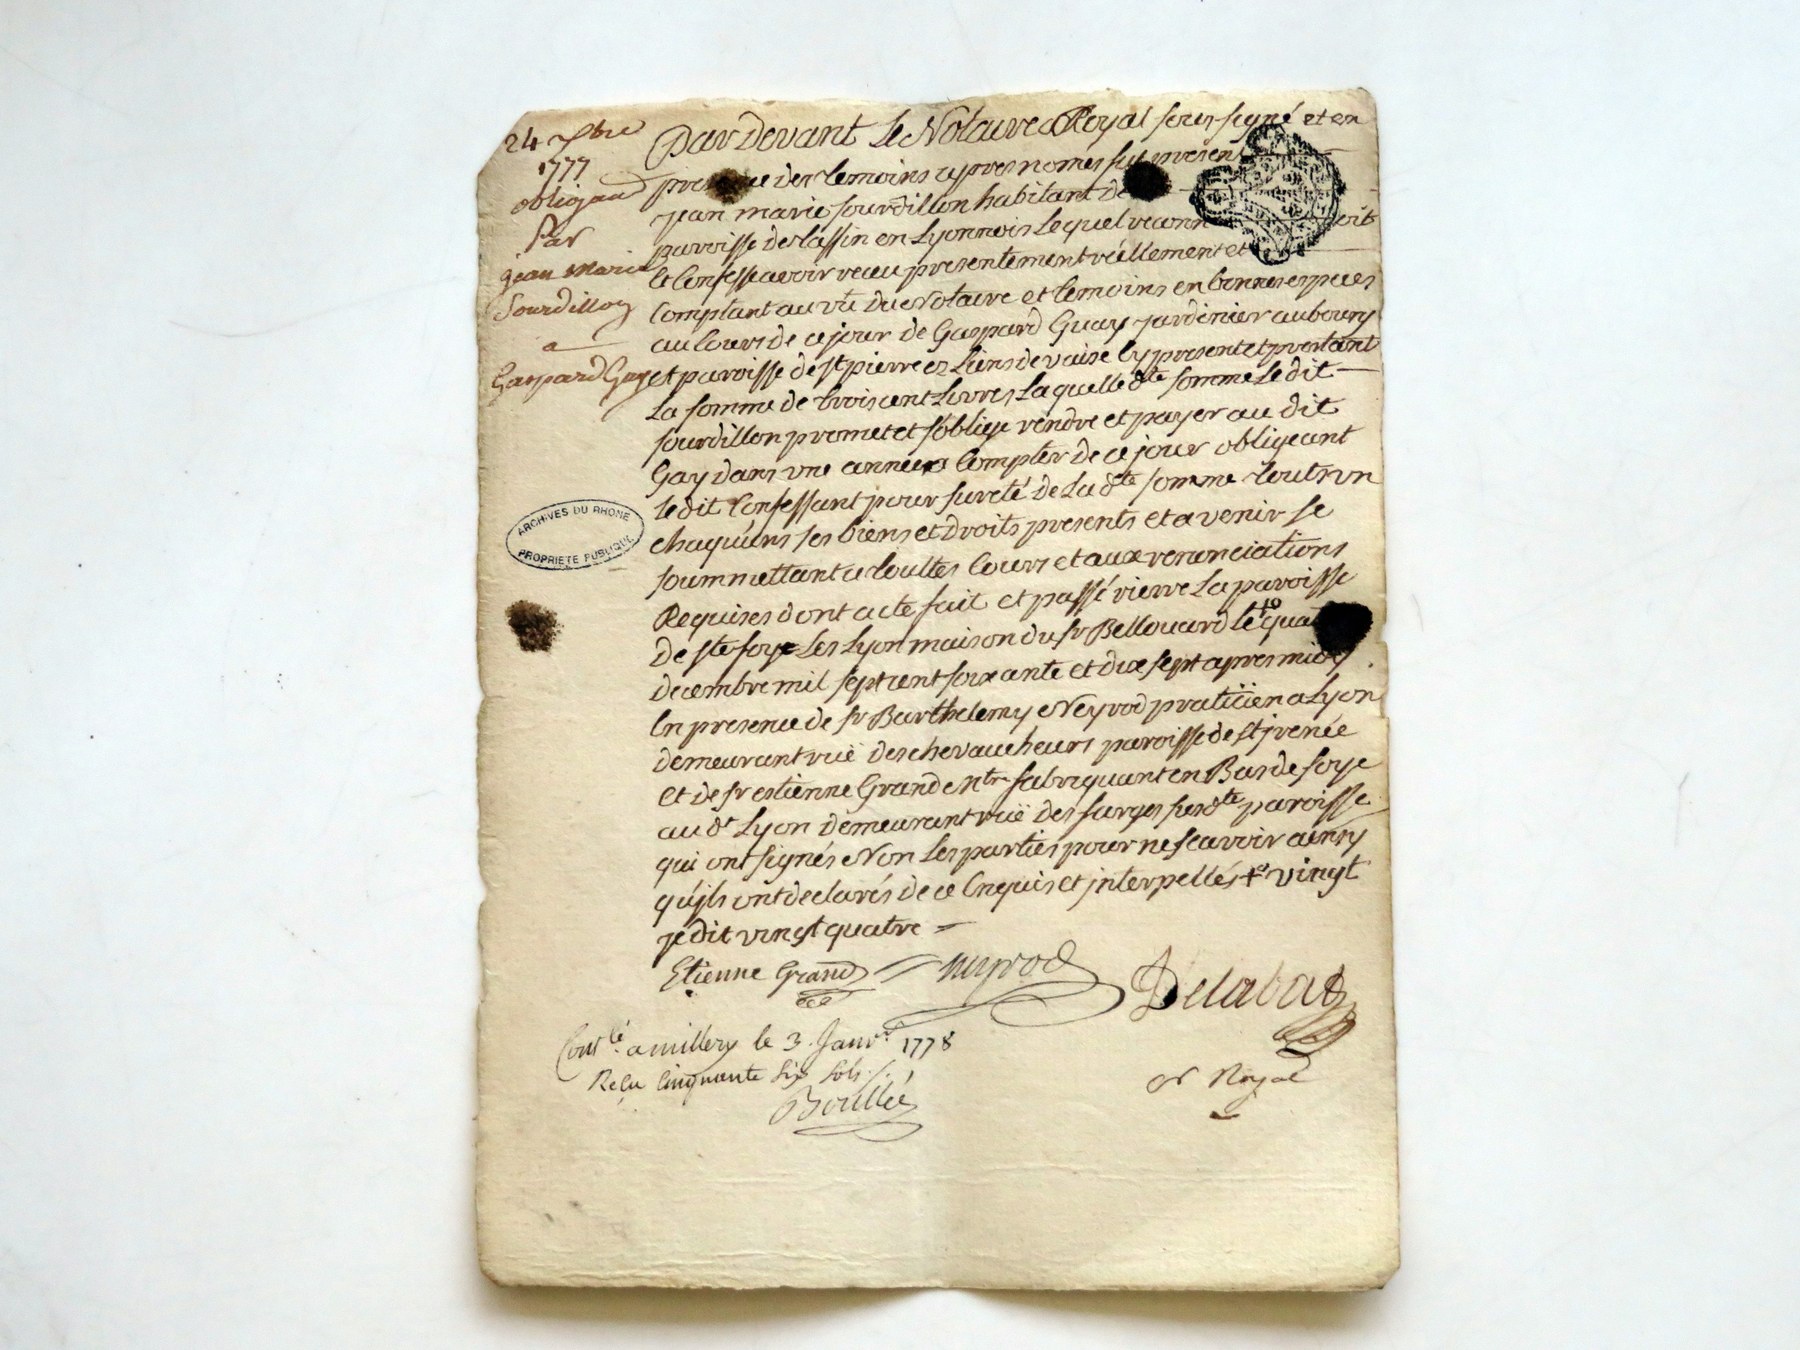 24 xbre
1777
obligaon
Par
jean Marie
Sourdillon
a
Gaspard Gay
Par Devant Le Notaire Royal sous signé et en
presence des temoins cy apres només fut present
jean marie sourdillon habitant de
paroisse de tassin en Lyonnois Lequel reconn oit
et Confesse avoir receu presentement réellement et
Comptant au vû du Notaire et temoins en bonnes especes
au Cours de ce jour de Gaspard Guay jardinier au bourg
et paroisse de st pierre ez Liens de vaise Cy present et pretant
La somme de trois cent Livres Laquelle dte somme Le dit
sourdillon promet et s'oblige rendre et payer au dit
Gay dans une année a Compter de ce jour obligeant
Le dit Confessant pour sureté de La dte somme tout et un
chaqu'uns ses biens et Droits presents et a venir se
soummettant a touttes Cours et aux renonciations
Requises dont acte fait et passé rierre La paroisse
De ste foye Les Lyon maison du sr Bellouard Le +o qua
decembre mil sept cent soixante et dix sept apres midy
En presence de sr Barthelemy Neyrod praticien a Lyon
demeurant ruë des chevaucheurs paroisse de st jrenée
et de sr estienne Grand Mtre fabriquant en Bas de soye
au dt Lyon demeurant ruë des farges susdte paroisse
qui ont signés Non Les parties pour ne scavoir ainsy
qu'jls ont declarés de ce Enquis et jnterpellés +o vingt
je dit vingt quatre
Etienne Grand neyrod Delabat
Contlé a millery le 3. Janvr. 1778
Reçu Cinquante six sols
N Royal
Boullée
ARCHIVES DU RHONE
PROPRIETE PUBLIQUE